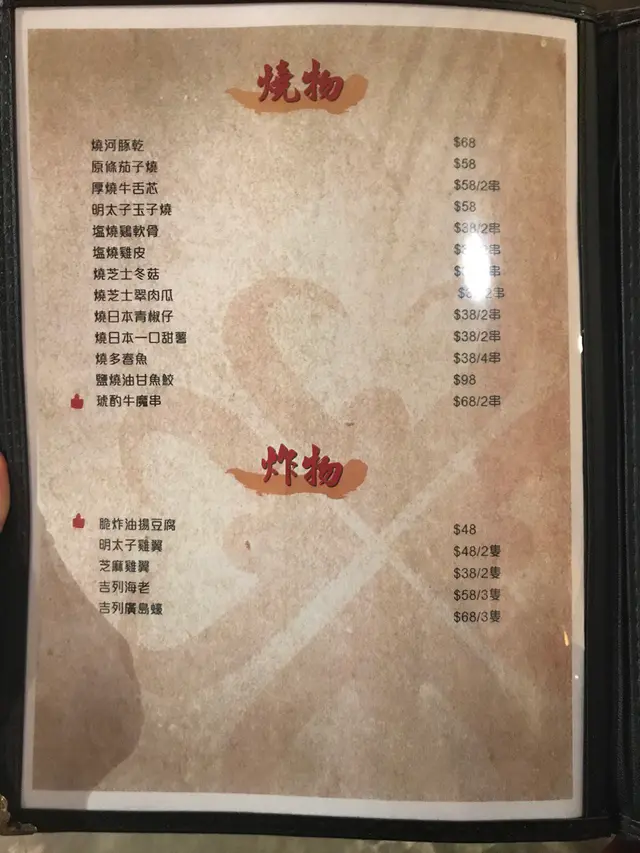 燒物
燒河豚乾 $68
原條茄子燒 $58
厚燒牛舌芯 $58/2串
明太子玉子燒 $58
塩燒鷄軟骨 $38/2串
塩燒雞皮 2串
燒芝士冬菇 2串
燒芝士翠肉瓜 2串
燒日本青椒仔 $38/2串
燒日本一口甜薯 $38/2串
燒多喜魚 $38/4串
鹽燒油甘魚鮫 $98
琥酌牛魔串 $68/2串
炸物
脆炸油揚豆腐 $48
明太子雞翼 $48/2隻
芝麻雞翼 $38/2隻
吉列海老 $58/3隻
吉列廣島蠔 $68/3隻